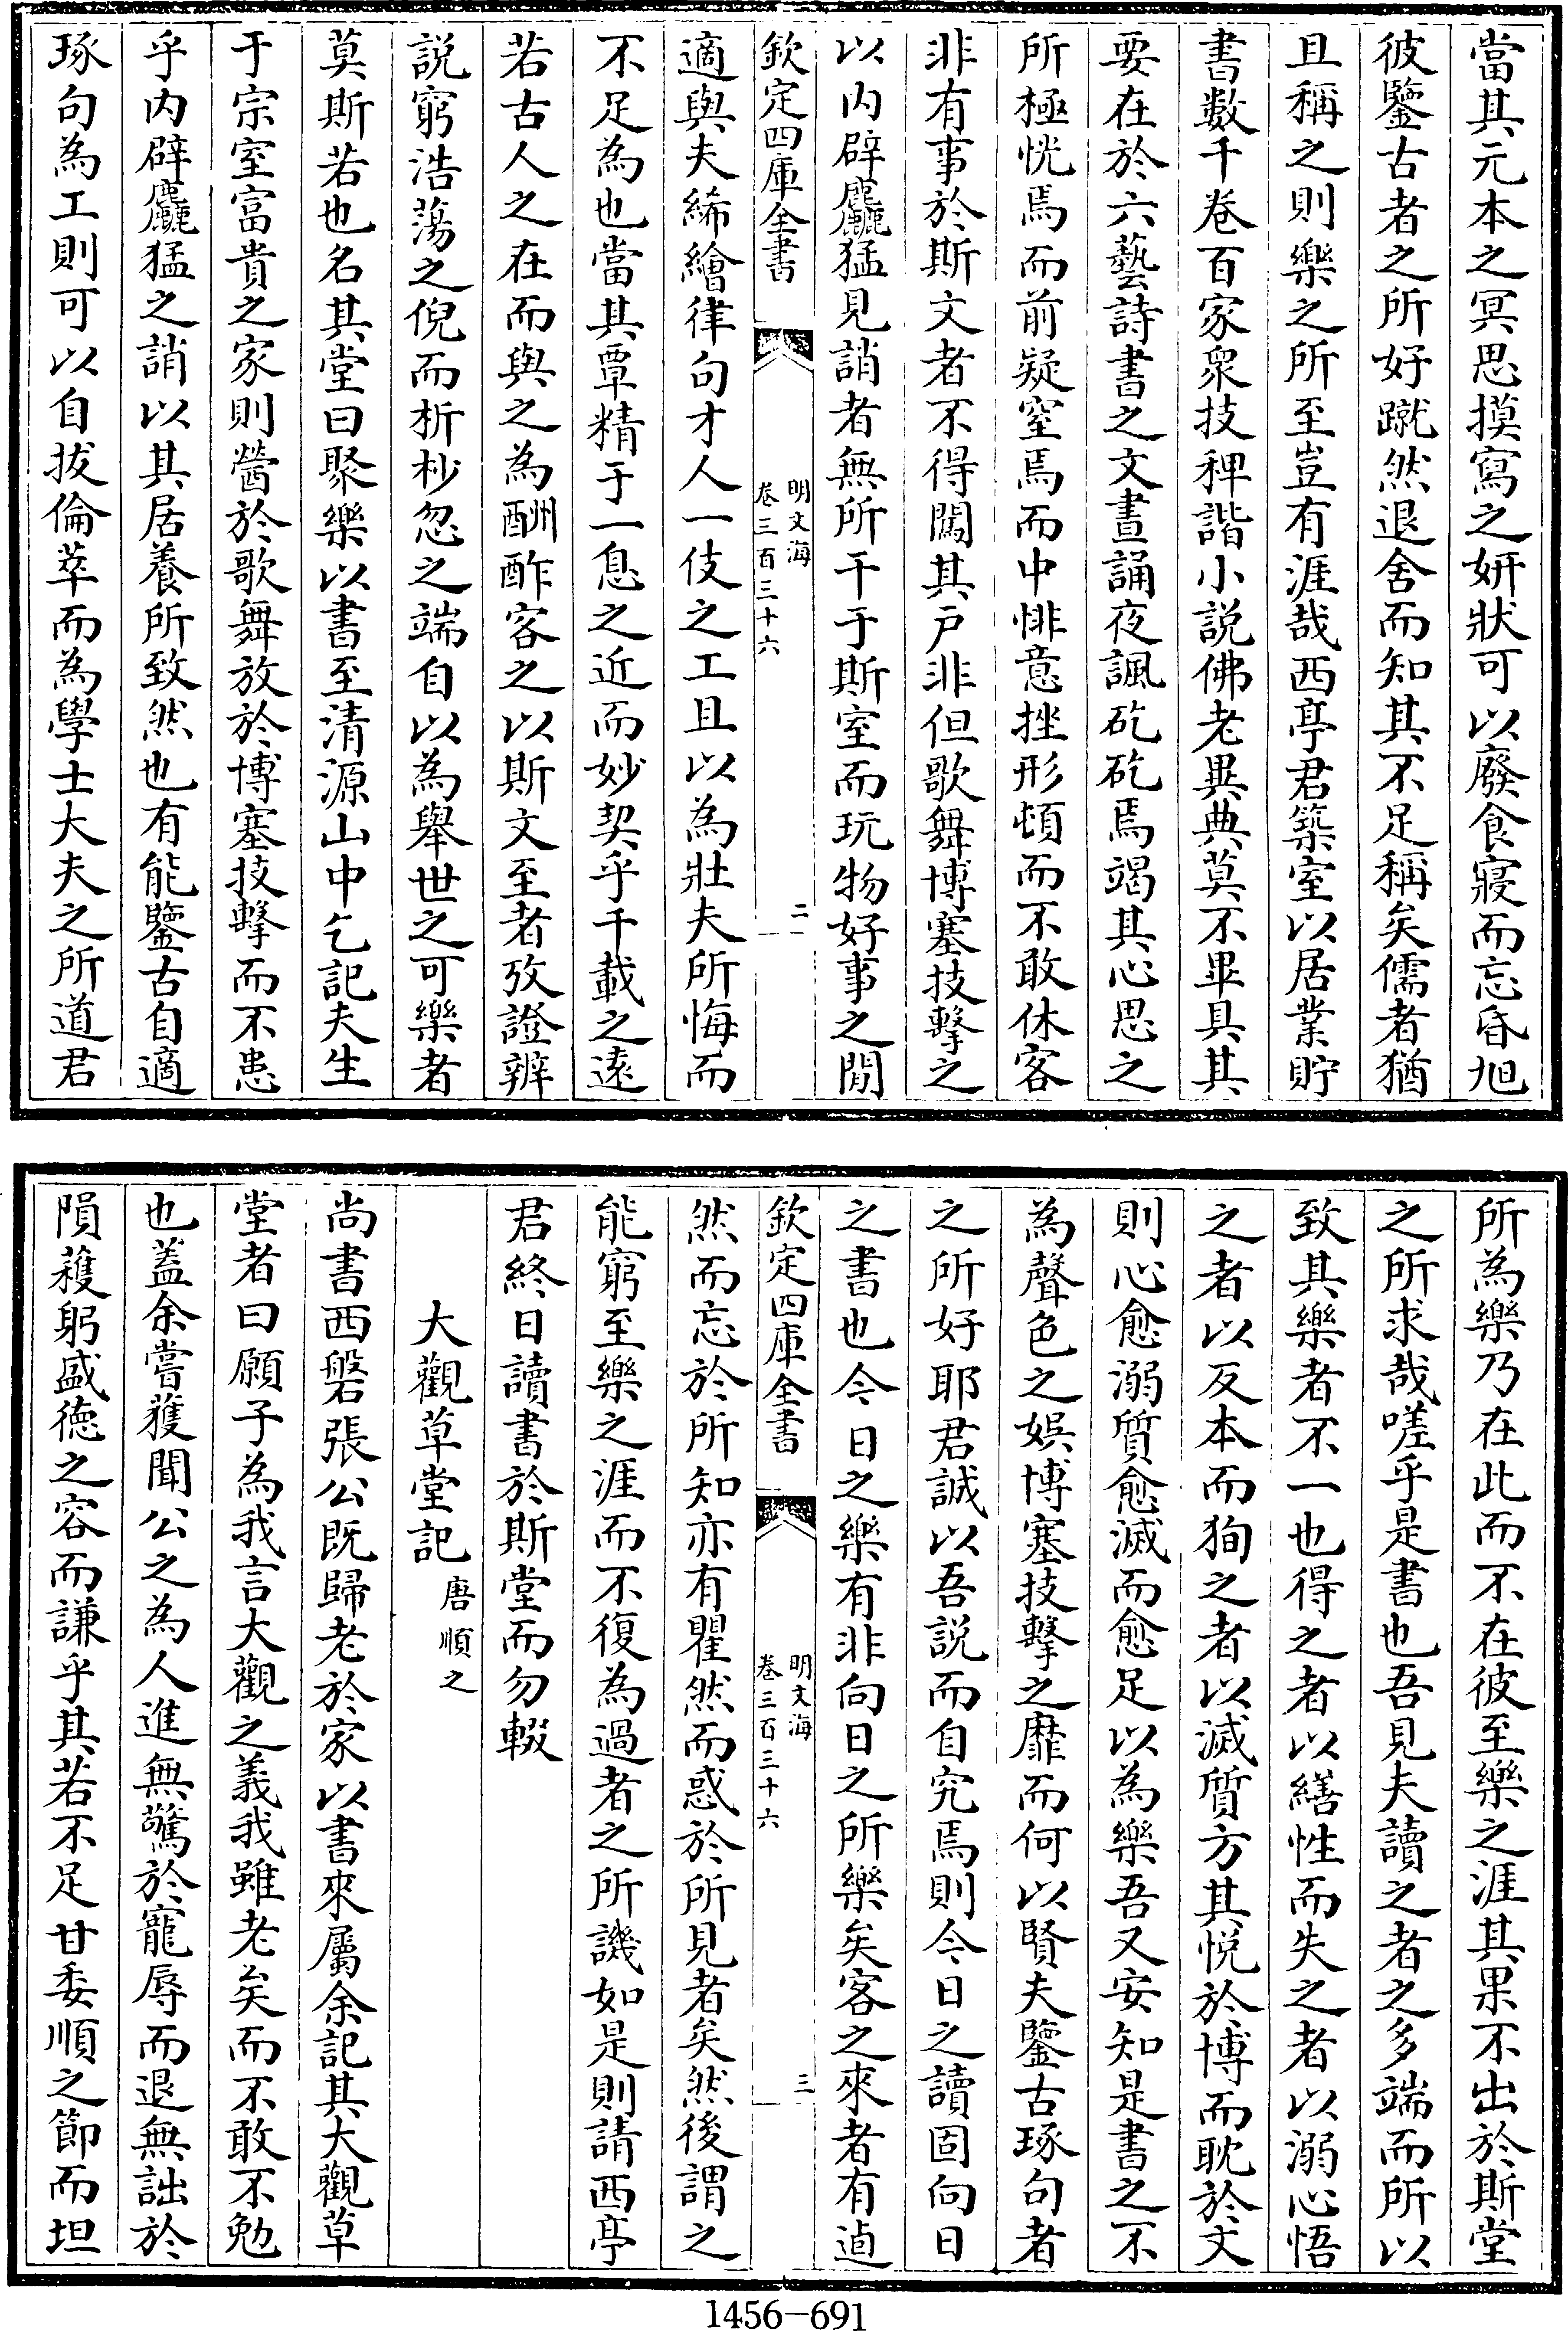 當其元本之冥思摸寫之妍狀可以廢食寢而忘昏旭
彼鑒古者之所好蹴然退舍而知其不足稱矣儒者猶
且稱之則樂之所至豈有涯哉西亭君築室以居業貯
書數千卷百家衆技稗諧小説佛老異典莫不畢具其
要在於六藝詩書之文晝誦夜諷矻矻焉竭其心思之
所極恍焉而前疑窒焉而中悱意挫形頓而不敢休客
非有事於斯文者不得闖其戶非但歌舞博塞技擊之
以内辟麤猛見誚者無所干于斯室而玩物好事之閒
欽定四庫全書
明文海
卷三百三十六
二
適與夫絺繪律句才人一伎之工且以為壯夫所悔而
不足為也當其覃精于一息之近而妙契乎千載之遠
若古人之在而與之為酬酢客之以斯文至者攷證辨
説窮浩蕩之倪而析杪忽之端自以為舉世之可樂者
莫斯若也名其堂曰聚樂以書至清源山中乞記夫生
于宗室富貴之家則醟於歌舞放於博塞技擊而不患
乎内辟麤猛之誚以其居養所致然也有能鑒古自適
琢句為工則可以自拔倫萃而為學士大夫之所道君
所為樂乃在此而不在彼至樂之涯其果不出於斯堂
之所求哉嗟乎是書也吾見夫讀之者之多端而所以
致其樂者不一也得之者以繕性而失之者以溺心悟
之者以反本而狥之者以滅質方其悅於博而耽於文
則心愈溺質愈滅而愈足以為樂吾又安知是書之不
為聲色之娛博塞技擊之靡而何以賢夫鑒古琢句者
之所好耶君誠以吾説而自究焉則今日之讀固向日
之書也今日之樂有非向日之所樂矣客之來者有逌
欽定四庫全書
明文海
卷三百三十六
三
然而忘於所知亦有瞿然而惑於所見者矣然後謂之
能窮至樂之涯而不復為過者之所譏如是則請西亭
君終日讀書於斯堂而勿輟
大觀草堂記 唐順之
尚書西磐張公既歸老於家以書來屬余記其大觀草
堂者曰願子為我言大觀之義我雖老矣而不敢不勉
也蓋余嘗獲聞公之為人進無驚於寵辱而退無詘於
隕穫躬盛德之容而謙乎其若不足甘委順之節而坦
1456-691